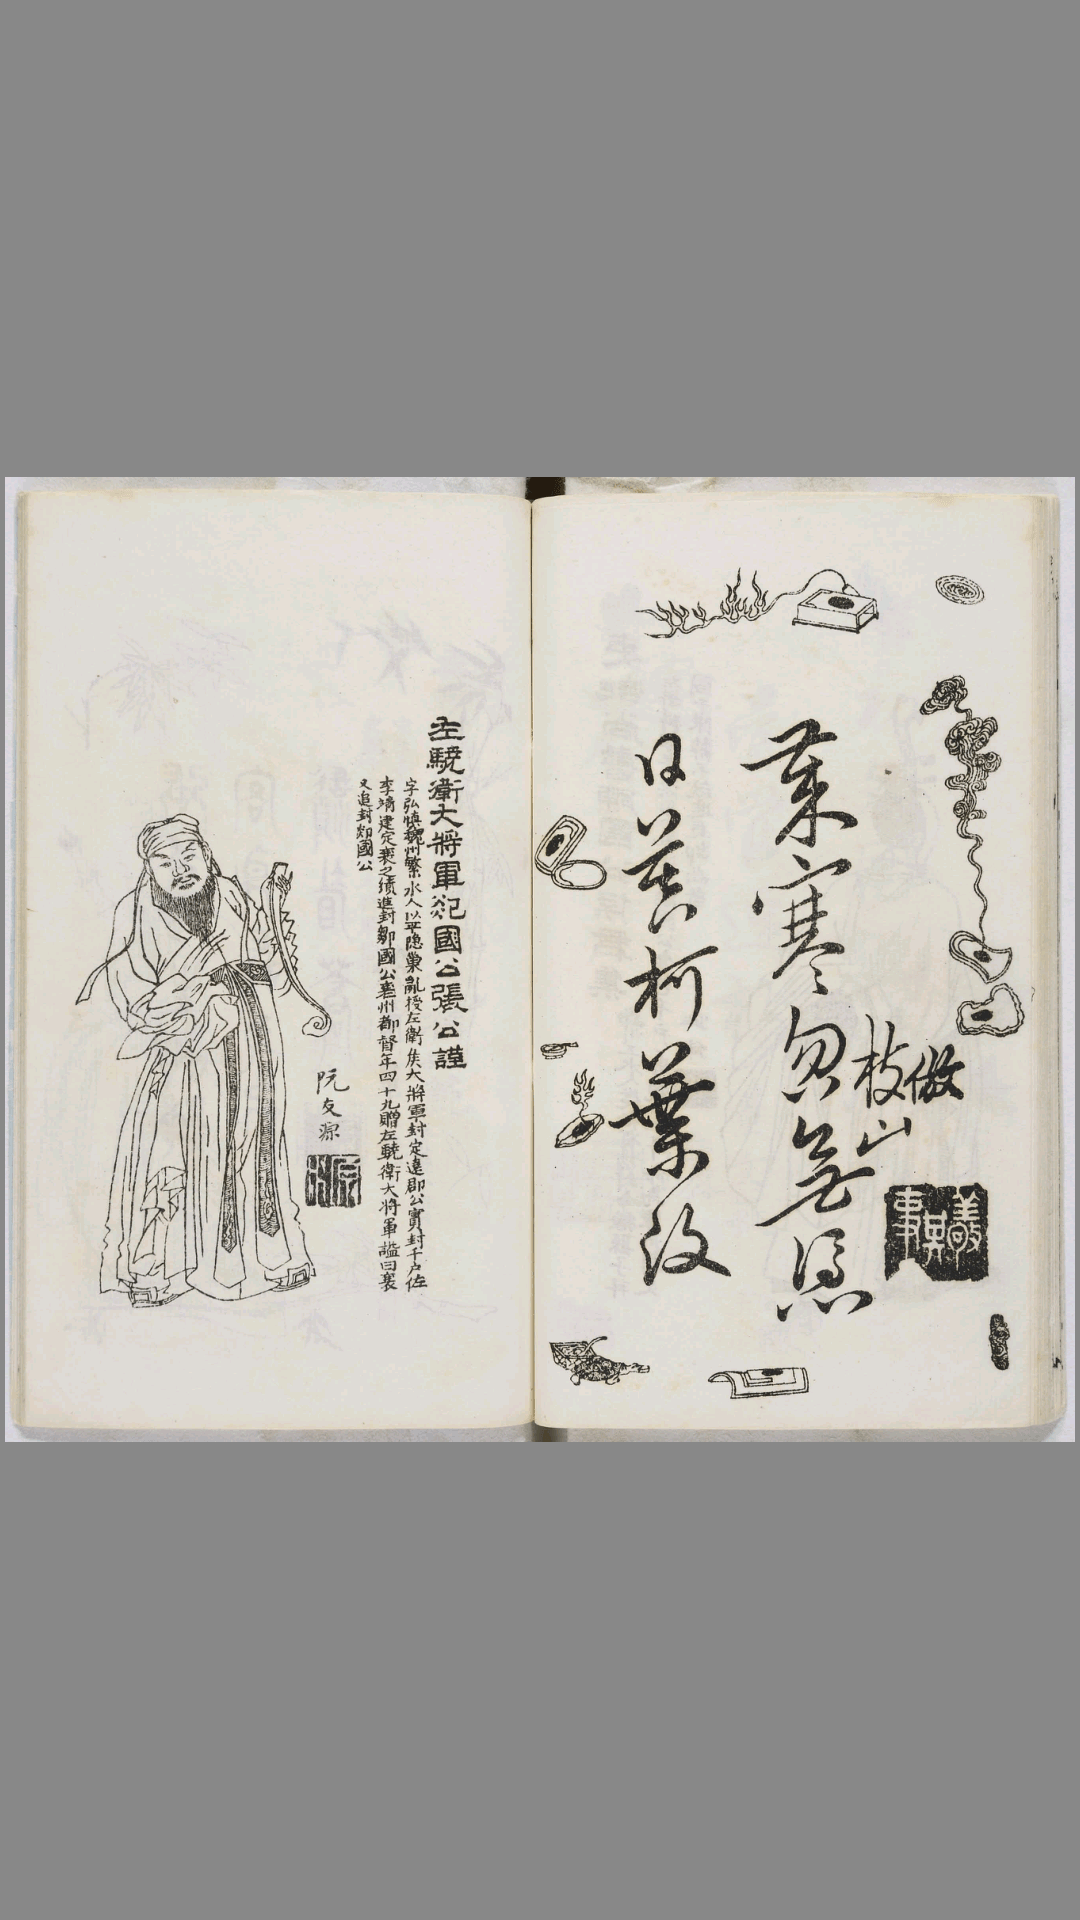 倣
枝山
歲寒忽無憑
日夜柯葉改
敬其事
左驍衛大將軍郯國公張公謹
字弘慎魏州繁水人以平隐巢亂授左衛矦大將軍封定遠郡公實封千户佐
李靖建定襄之績進封鄒國公襄州都督年四十九贈左驍衛大將軍謚曰襄
又追封郯國公
阮友源